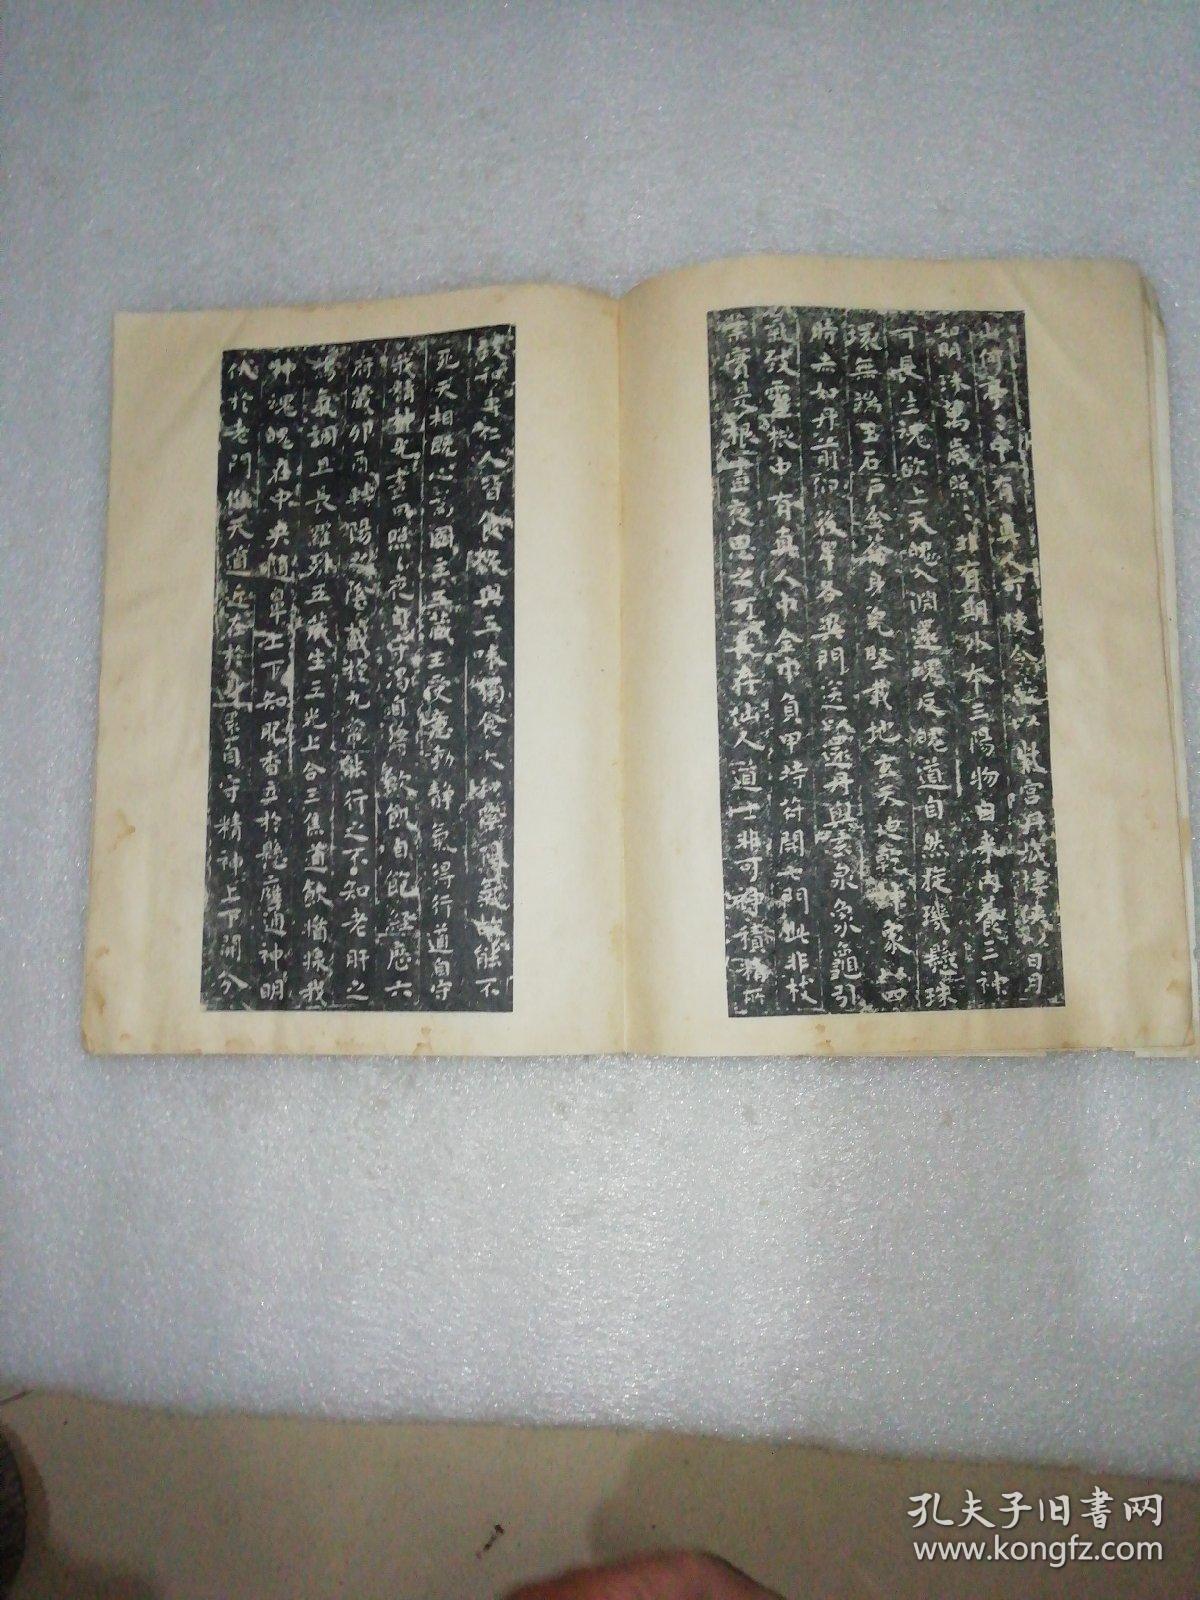 何等 中有真人可使令 以紫宫丹城楼 日月
如明珠万歲照 非有期外本三陽物自来内養三神
可長生魂欲上天魄入淵還魂反魄道自然旋璣懸珠
環無端玉石戶金籥身完堅載地玄天迫乾坤象以四
時赤如丹前仰後卑各異門送以還丹與玄泉象龜引
氣致靈根中有真人巾金巾負甲持符開七門此非枝
葉實是根晝夜思之可長存仙人道士非可神積精所
致和專仁人皆食穀與五味獨食太和陰陽氣故能不
死天相既心為國主五藏王受意動靜氣得行道自守
我精神光晝日照照夜自守渴自得飲飢自飽經歷六
府藏卯酉轉陽之陰藏於九常能行之不知老肝之
為氣調且長羅列五藏生三光上合三焦道飲漿我
神魂魄在中央隨鼻上下知肥香立於懸膺通神明
伏於老門候天道近在於身還自守精神上下開分
孔夫子旧书网
www.kongfz.com